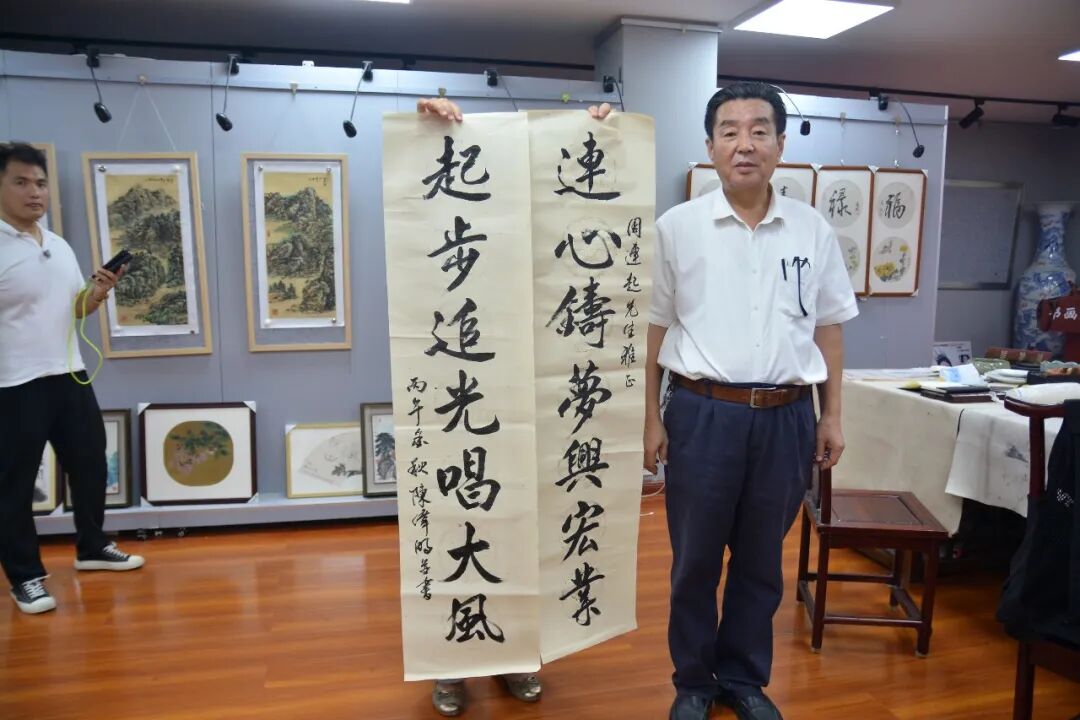 連心鑄夢興宏業
周連起先生雅正
起步追光唱大風
丙午金秋 陳 書
福
禄
书画